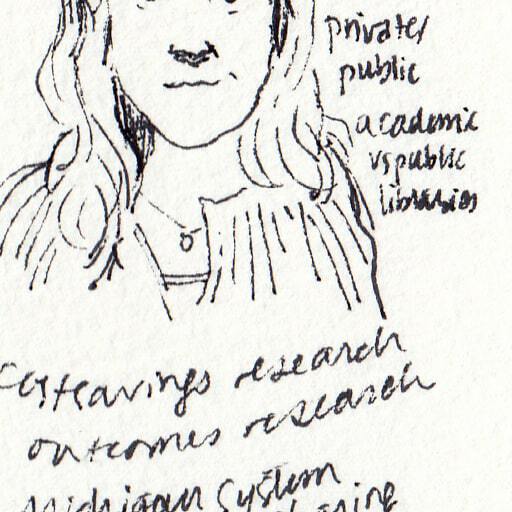 private/
public
academic
vs public
libraries
research
outcomes research
Michigan System